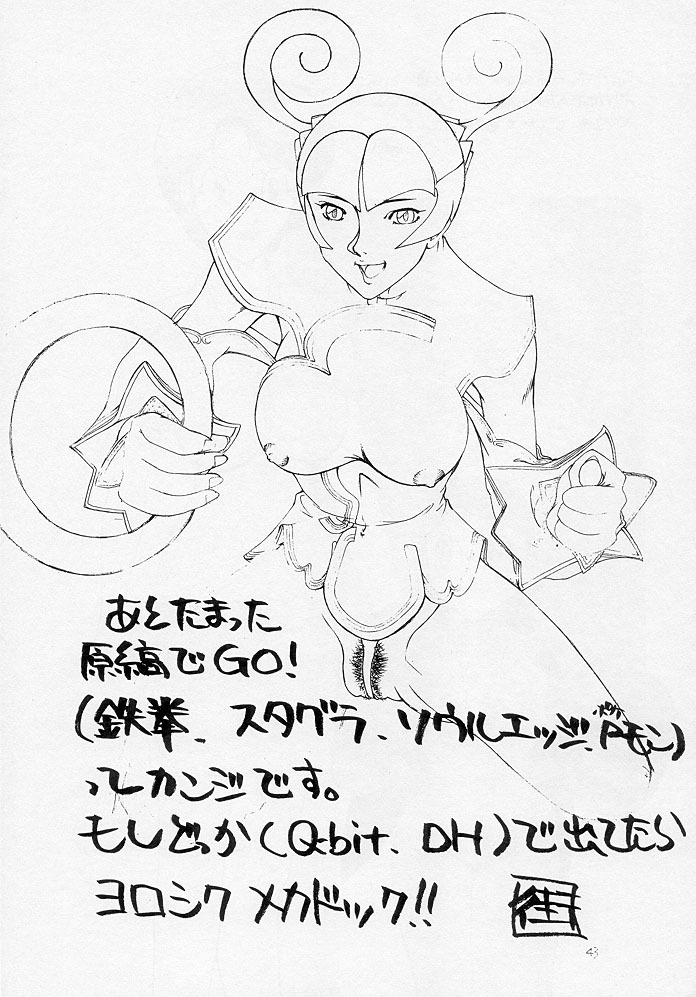 あとたまった
原稿でGO!
(鉄拳、スタグラ、ソウルエッジ、Pモン)
ってカンジです。
もしどっか(Q-bit、DH)で出てたら
ヨロシクメカドック!!
43